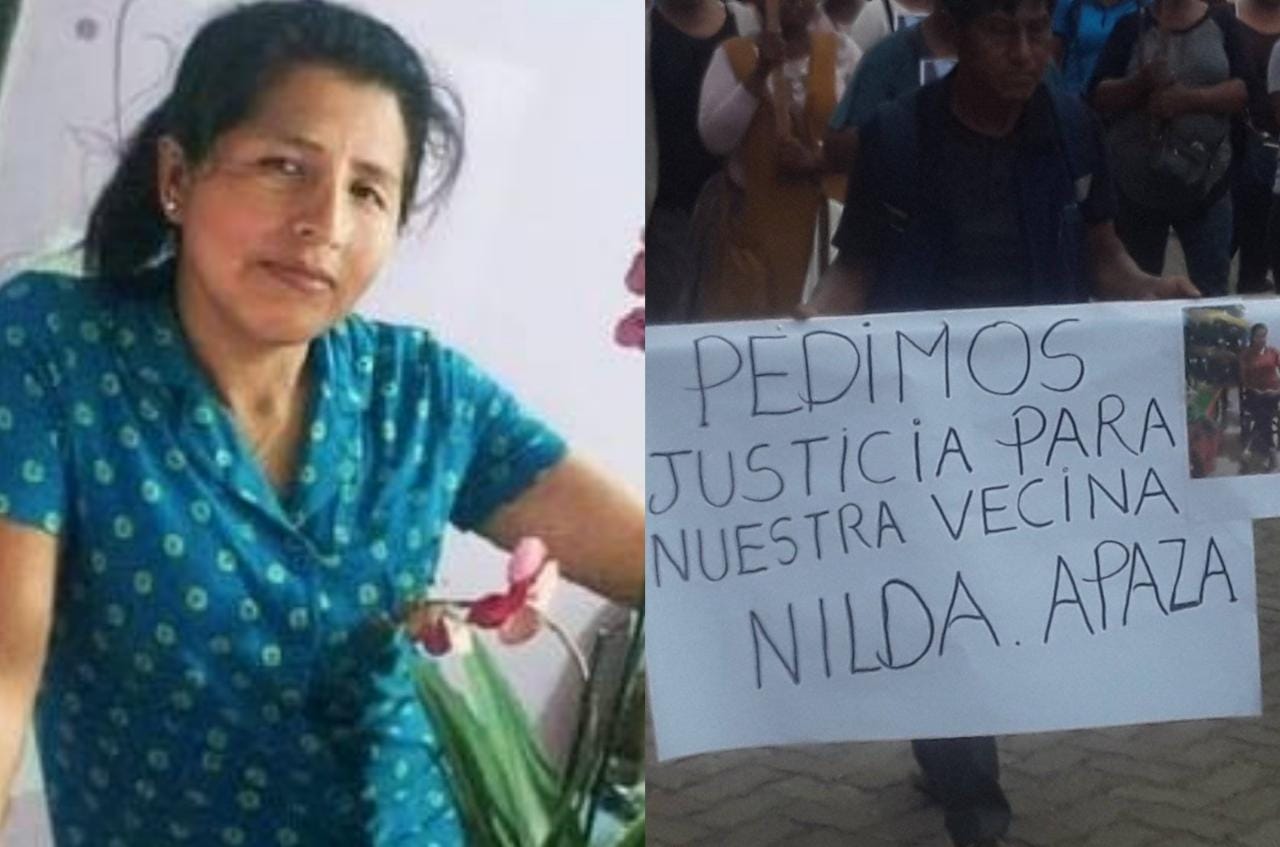 PEDIMOS
JUSTICIA PARA
NUESTRA VECINA
NILDA. APAZA